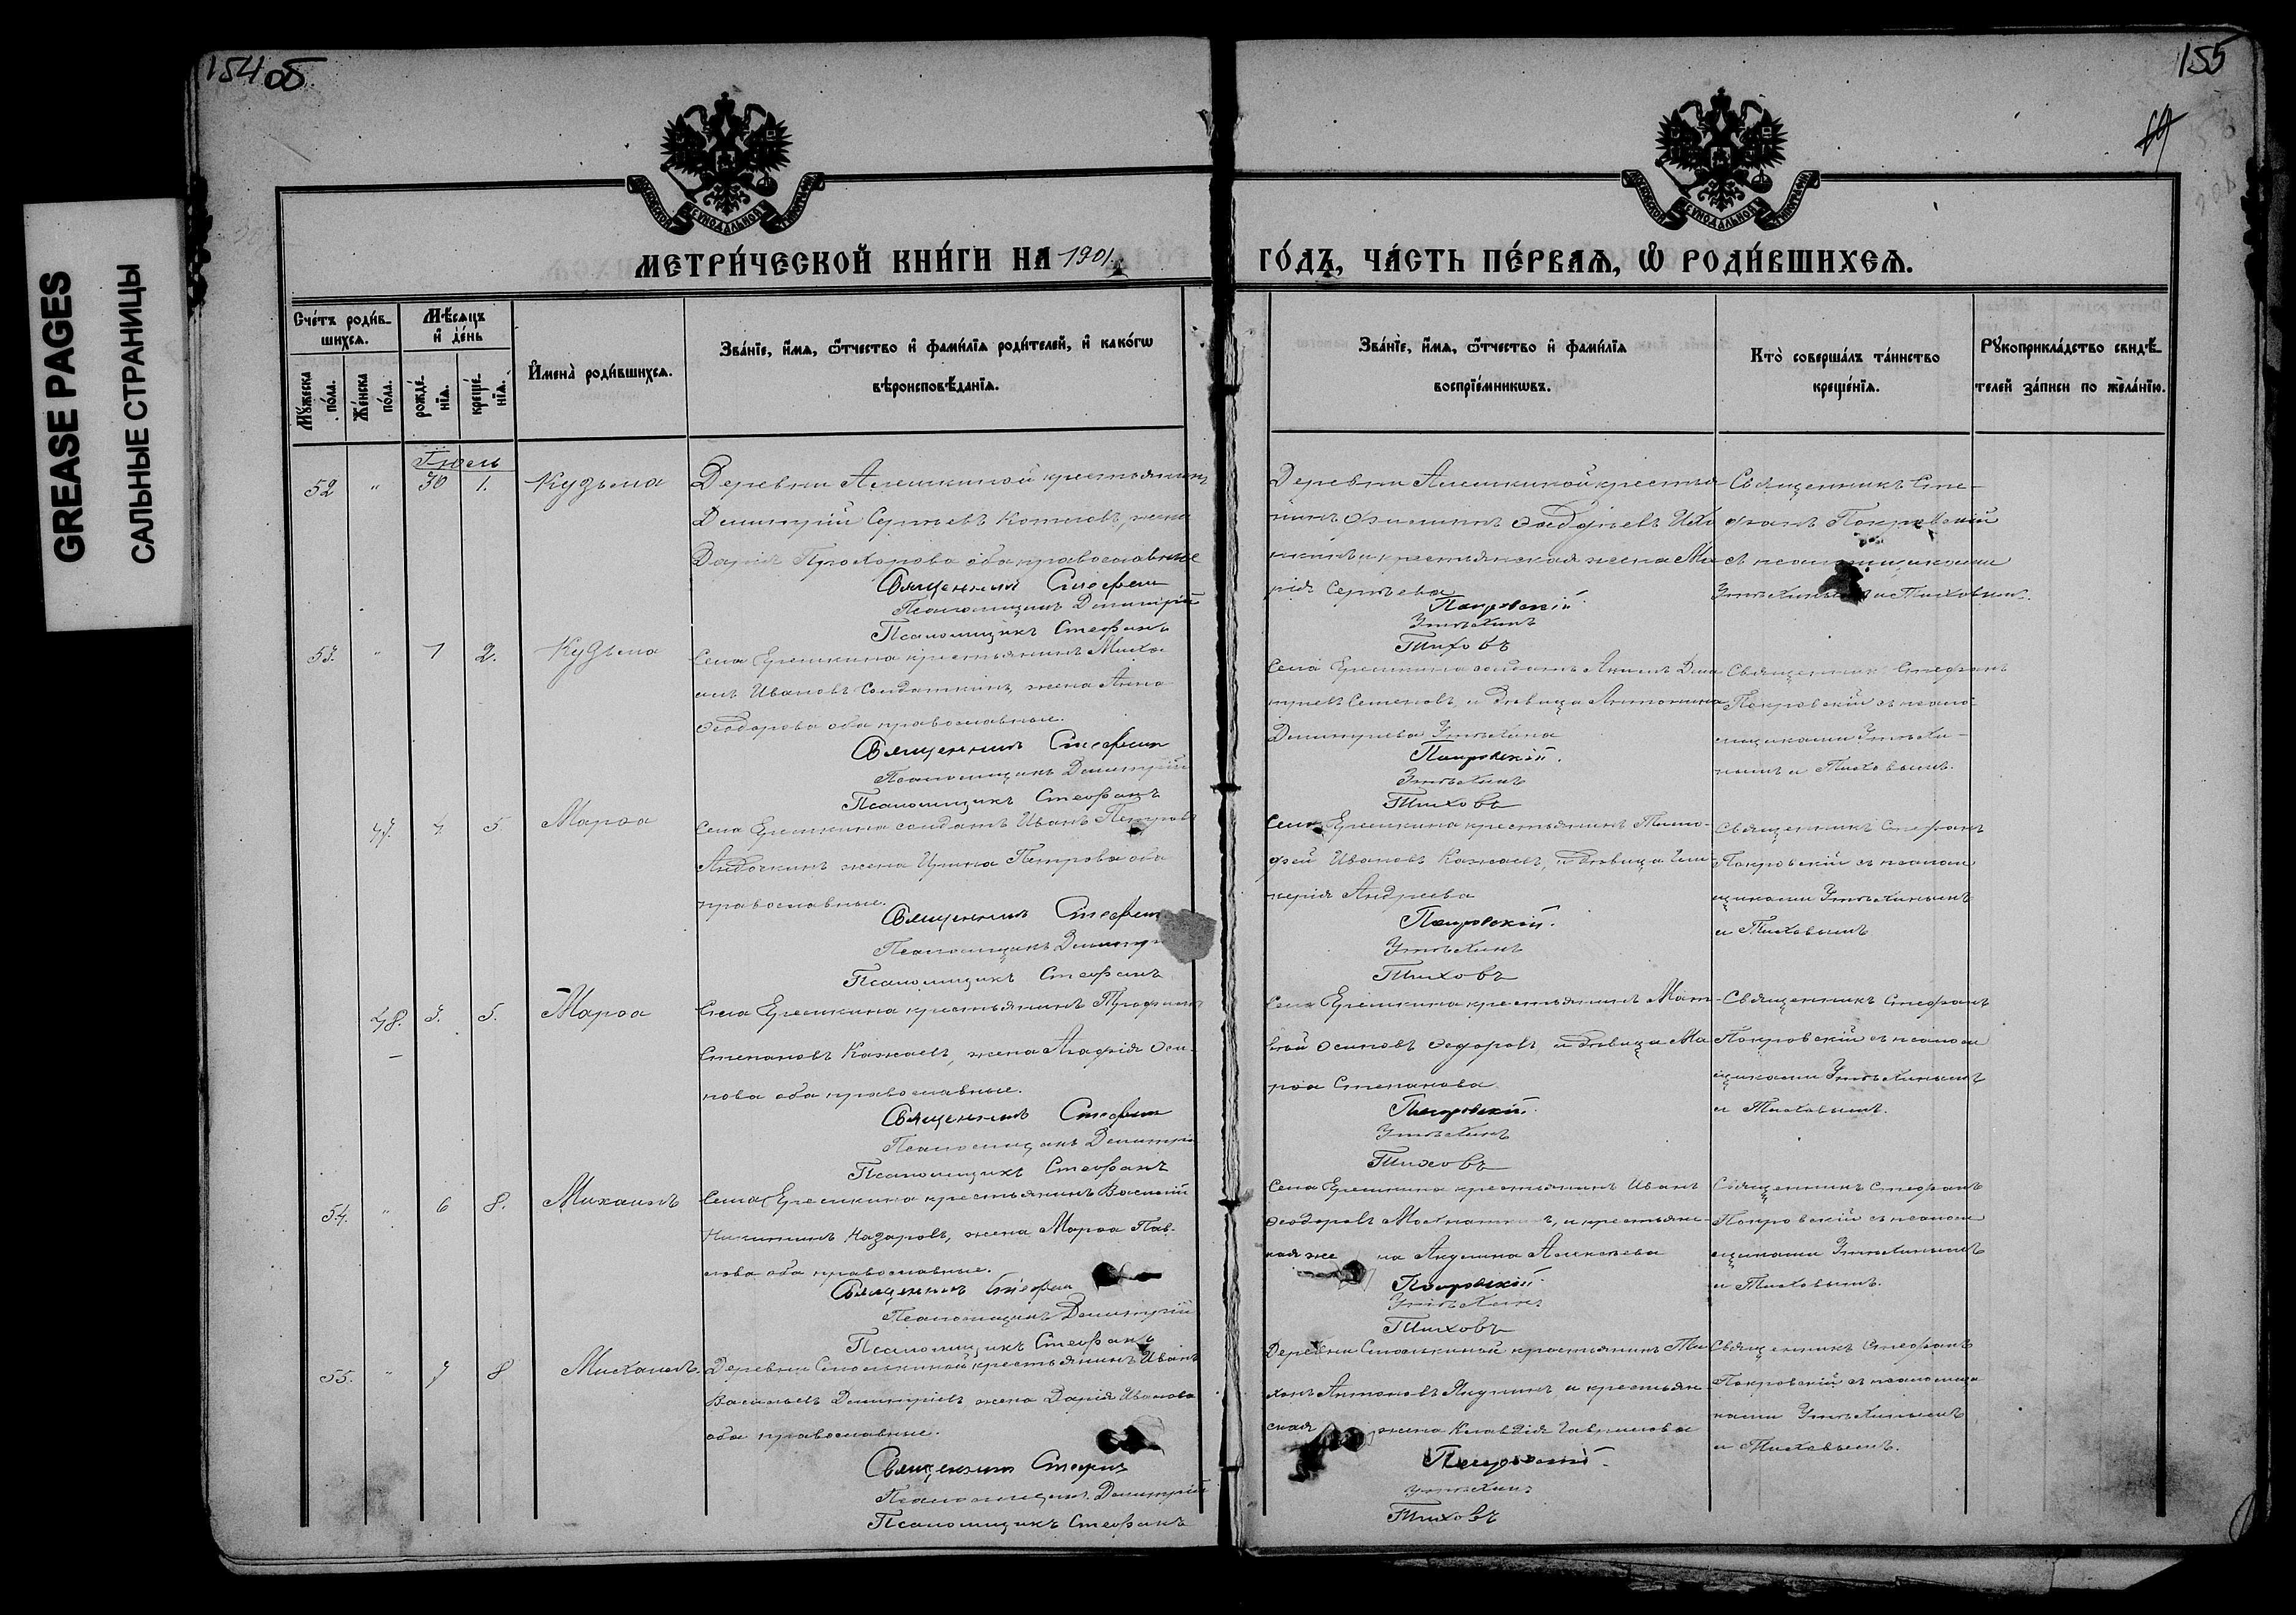 154 об.
155
GREASE PAGES
САЛЬНЫЕ СТРАНИЦЫ
МЕТРИ́ЧЕСКОЙ КНИ́ГИ НА 1901.
ГО́ДЪ, ЧА́СТЬ ПЕ́РВАѦ, Ѽ РОДИ́ВШИХСѦ.
Сче́тъ роди́в-
шихсѧ.
Мѣ́сѧцъ
и҆ де́нь
Мꙋ́жеска
по́ла.
Же́нска
по́ла.
рожде́-
нїѧ.
креще́-
нїѧ.
И҆мена̀ роди́вшихсѧ.
Зва́нїе, и҆́мѧ, ѻ҆́тчество и҆ фами́лїѧ роди́телей, и҆ како́гѡ
вѣроисповѣ́данїѧ.
Зва́нїе, и҆́мѧ, ѻ҆́тчество и҆ фами́лїѧ
воспрїе́мникѡвъ.
Кто̀ соверша́лъ та́инство
креще́нїѧ.
Рꙋкоприкла́дство свидѣ́-
телей за́писи по жела́нїю.
Іюль
52 " 30 1. Кузьма
Деревни Алешкиной крестьянинъ
Димитрій Сергѣевъ Котловъ, жена
Дарія Прохорова оба православные
Священникъ Стефан
Псаломщикъ Димитрій
Псаломщикъ Стефанъ
Деревни Алешкиной крестья-
нинъ Филиппъ
и крестьянская жена Ма-
рія Сергѣева
Покровскій
Утѣхинъ
Тиховъ
Священникъ Сте-
фанъ Покровскій
съ псаломщиками
Утѣхинымъ и Тиховым.
53. " 1 2. Кузьма
Села Ерешкина крестьянинъ Миха-
илъ Ивановъ Солдаткинъ, жена Анна
Ѳеодорова оба православные.
Священникъ Стефан
Псаломщикъ Димитрій
Псаломщикъ Стефанъ
Села Ерешкина солдатъ Акимъ Дим
тріевъ Семеновъ, и дѣвица Антонина
Димитріева Утѣхина
Покровскій.
Утѣхинъ
Тиховъ
Священникъ Стефанъ
Покровскій съ псало-
мщиками Утѣхи-
нымъ и Тиховымъ.
47. 4. 5. Марѳа
Села Ерешкина солдатъ Иванъ Петровъ
жена Ирина Петрова оба
православные.
Священникъ Стефан
Псаломщикъ Димитр
Псаломщикъ Стефанъ
Села Ерешкина крестьянинъ Тимо-
фей Ивановъ Кажаевъ, и дѣвица Гли-
керія Андреева
Покровскій.
Утѣхинъ
Тиховъ
Священникъ Стефанъ
Покровскій съ псалом
щиками Утѣхинымъ
и Тиховымъ
48. 5. 5. Марѳа
Села Ерешкина крестьянинъ Трофимъ
Степановъ Кажаевъ, жена Агафія Оси-
пова оба православные.
Священникъ Стефан
Псаломщикъ Димитрі
Псаломщикъ Стефанъ
Села Ерешкина крестьянинъ Мат-
вѣй Осиповъ Ѳедоровъ, и дѣвица Ма-
рѳа Степанова
Покровскій.
Утѣхинъ
Тиховъ
Священникъ Стефанъ
Покровскій съ псалом
щиками Утѣхинымъ
и Тиховымъ.
54. " 6 8. Михаилъ
Села Ерешкина крестьянинъ Василій
Никитинъ Назаровъ, жена Марѳа Пав-
лова оба православные.
Священникъ Стефан
Псаломщикъ Димитрій
Псаломщикъ Стефанъ
Села Ерешкина крестьянинъ Иванъ
Ѳеодоровъ и крестьян-
ская же на Акулина Алексѣева
Покровскій.
Утѣхинъ
Тиховъ
Священникъ Стефанъ
Покровскій съ псалом
щиками Утѣхинымъ
и Тиховымъ.
55. " 7 8 Михаилъ.
Деревни Смолькиной крестьянинъ Иванъ
Васильевъ Димитріевъ жена Дарія Иванова
оба православные.
Священникъ Стефан
Псаломщикъ Димитрій
Псаломщикъ Стефанъ
Деревни Смолькиной крестьянинъ Ти-
хонъ Антоновъ Якунинъ и крестьян-
ская жена Клавдія Гавриилова
Покровскій.
Утѣхинъ
Тиховъ
Священникъ Стефанъ
Покровскій съ псаломщи
ками Утѣхинымъ
и Тиховымъ.